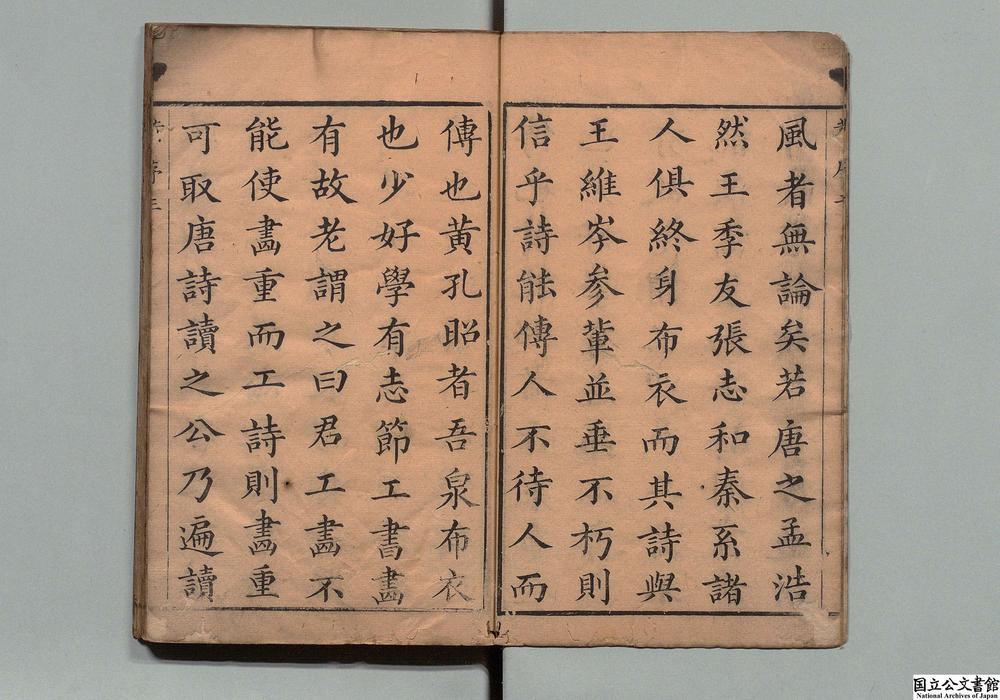 風者無論矣若唐之孟浩
然王季友張志和秦系諸
人俱終身布衣而其詩與
王維岑參輩並垂不朽則
信乎詩能傳人不待人而
傳也黃孔昭者吾泉布衣
也少好學有志節工書畵
有故老謂之曰君工畵不
能使畵重而工詩則畵重
可取唐詩讀之公乃遍讀
国立公文書館
National Archives of Japan